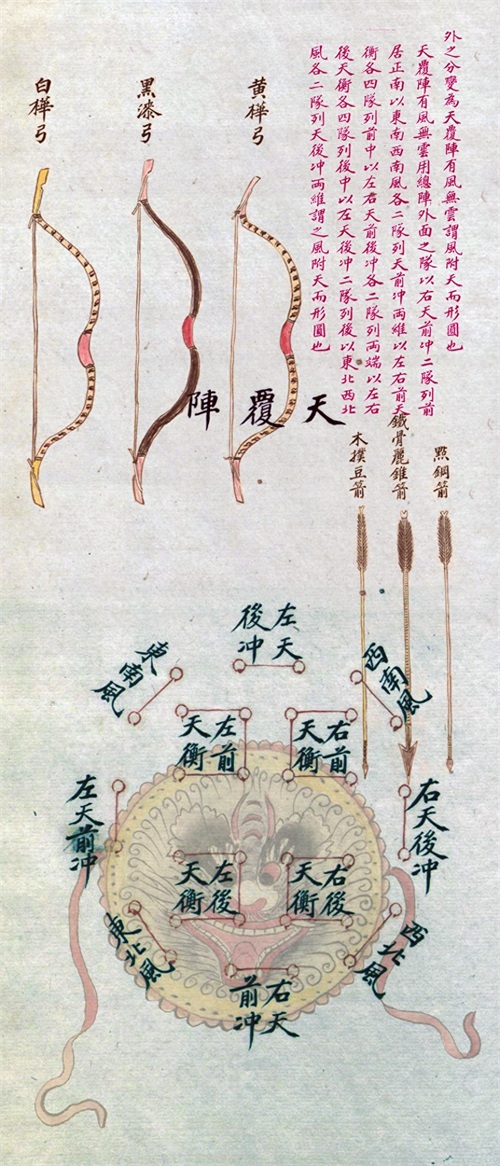 外之分變為天覆陣有風無雲謂風附天而形圓也
天覆陣有風無雲用總陣外面之隊以右天前冲二隊列前
居正南以東南西南風各二隊列天前冲兩維以左右前天
衡各四隊列前中以左右天前後冲各二隊列兩端以左右
後天衡各四隊列後中以左天後冲二隊列後以東北西北
風各二隊列天後冲兩維謂之風附天而形圓也
黃樺弓
黑漆弓
白樺弓
天覆陣
點鋼箭
鐵骨麗錐箭
木撲豆箭
左天
後冲
西南風
東南風
右前
天衡
左前
天衡
右天後冲
左天前冲
右後
天衡
左後
天衡
西北風
東北風
右天
前冲